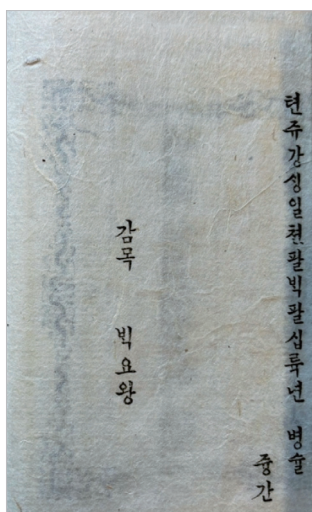 텬쥬강싱일쳔팔빅팔십륙년 병슐
즁간
감목 빅요왕